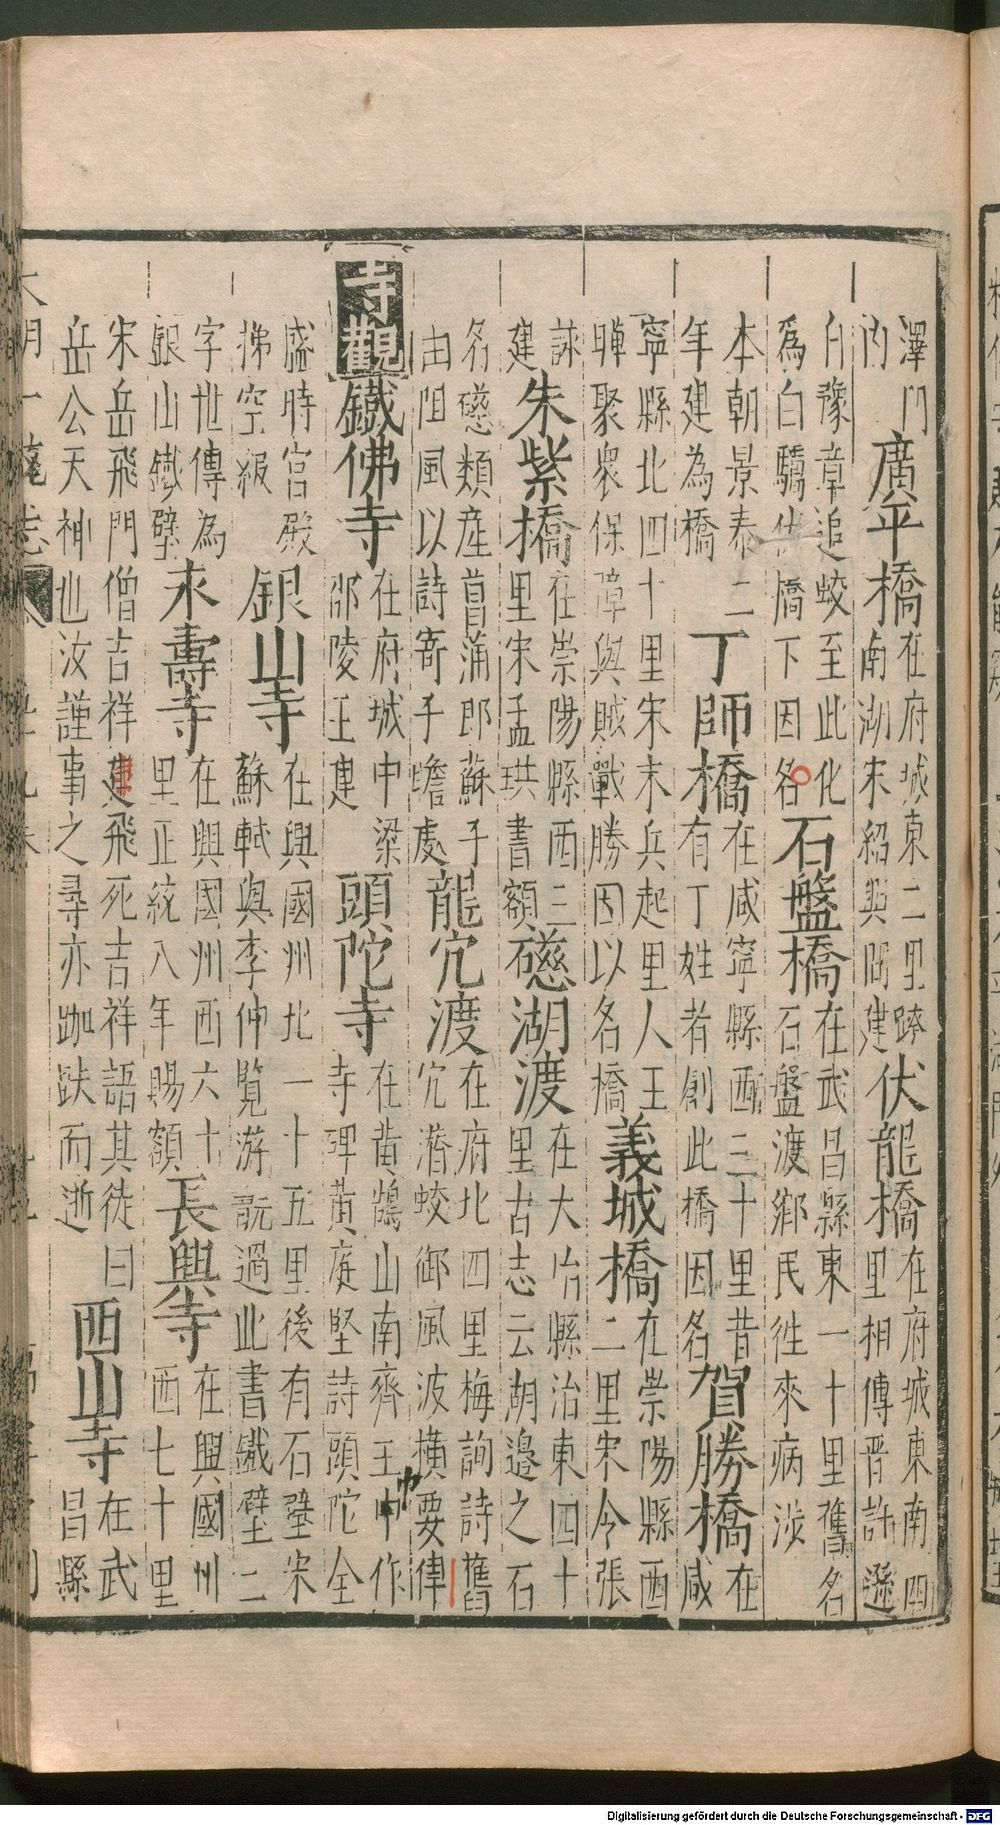 澤門内廣平橋在府城東二里跨南湖宋紹興間建伏龍橋在府城東南四里相傳晋許遜
自豫章追蛟至此化為白驕伏橋下因名石盤橋在武昌縣東一十里舊名石盤渡鄉民徃來病涉
本朝景泰二年建為橋丁師橋在咸寧縣西三十里昔有丁姓者創此橋因名賀勝橋在咸
寧縣北四十里宋末兵起里人王曄聚衆保障與賊戰勝因以名橋義城橋在崇陽縣西二里宋令張
詠建朱紫橋在崇陽縣西三里宋孟珙書額磁湖渡在大冶縣治東四十里古志云湖邉之石
名磁類産菖蒲郎蘇子由阻風以詩寄子瞻處龍穴渡在府北四里梅詢詩舊穴濳蛟御風波横要俥
寺觀鐵佛寺在府城中梁邵陵王建頭陀寺在黄鶴山南齊王屮作寺碑黄庭堅詩頭陀全
盛時宫殿拂空級銀山寺在興國州北一十五里後有石壁宋蘇軾與李仲覽游既過此書鐵壁二
字世傳為銀山鐵壁永壽寺在興國州西六十里正統八年賜額長興寺在興國州西七十里
宋岳飛門僧吉祥建飛死吉祥語其徒曰岳公天神也汝謹事之尋亦跏趺而逝西山寺在武昌縣
Digitalisierung gefördert durch die Deutsche Forschungsgemeinschaft - DFG